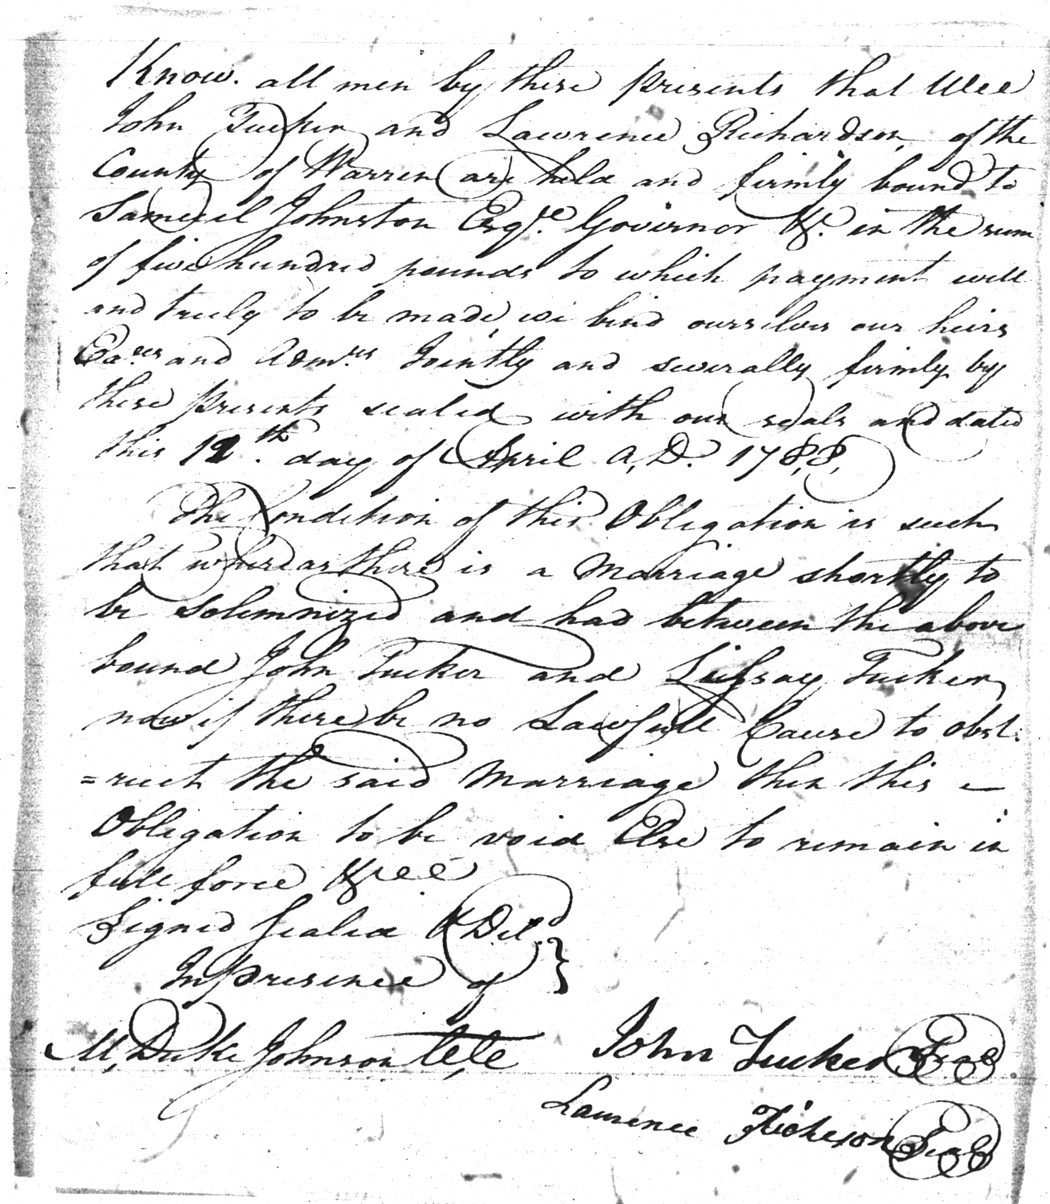 Know. all men by these presents that Wee
John Tucker and Lawrence Richardson, of the
County of Warren are held and firmly bound to
Samuel Johnston Esqr. Governor &c. in the sum
of five hundred pounds to which payment well
and truly to be made, we bind ourselves our heirs
Exers and Admrs Jointly and severally firmly by
these presents sealed with our seals and dated
this 12th. day of April A,D. 1788,
The Condition of this Obligation is such
that whereas there is a Marriage shortly to
be Solemnized and had between the above
bound John Tucker and Tucker,
now if there be no Lawfull Cause to obst:
=ruct the said Marriage then this
Obligation to be void Else to remain in
full force &cc
Signed Sealed & Deld
In presence of
M, Duke Johnson
John Tucker Seal
Laurence Seal